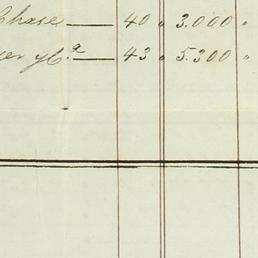 Chase — 40 " 3.000 "
er y Ca — 43 " 5.300 "